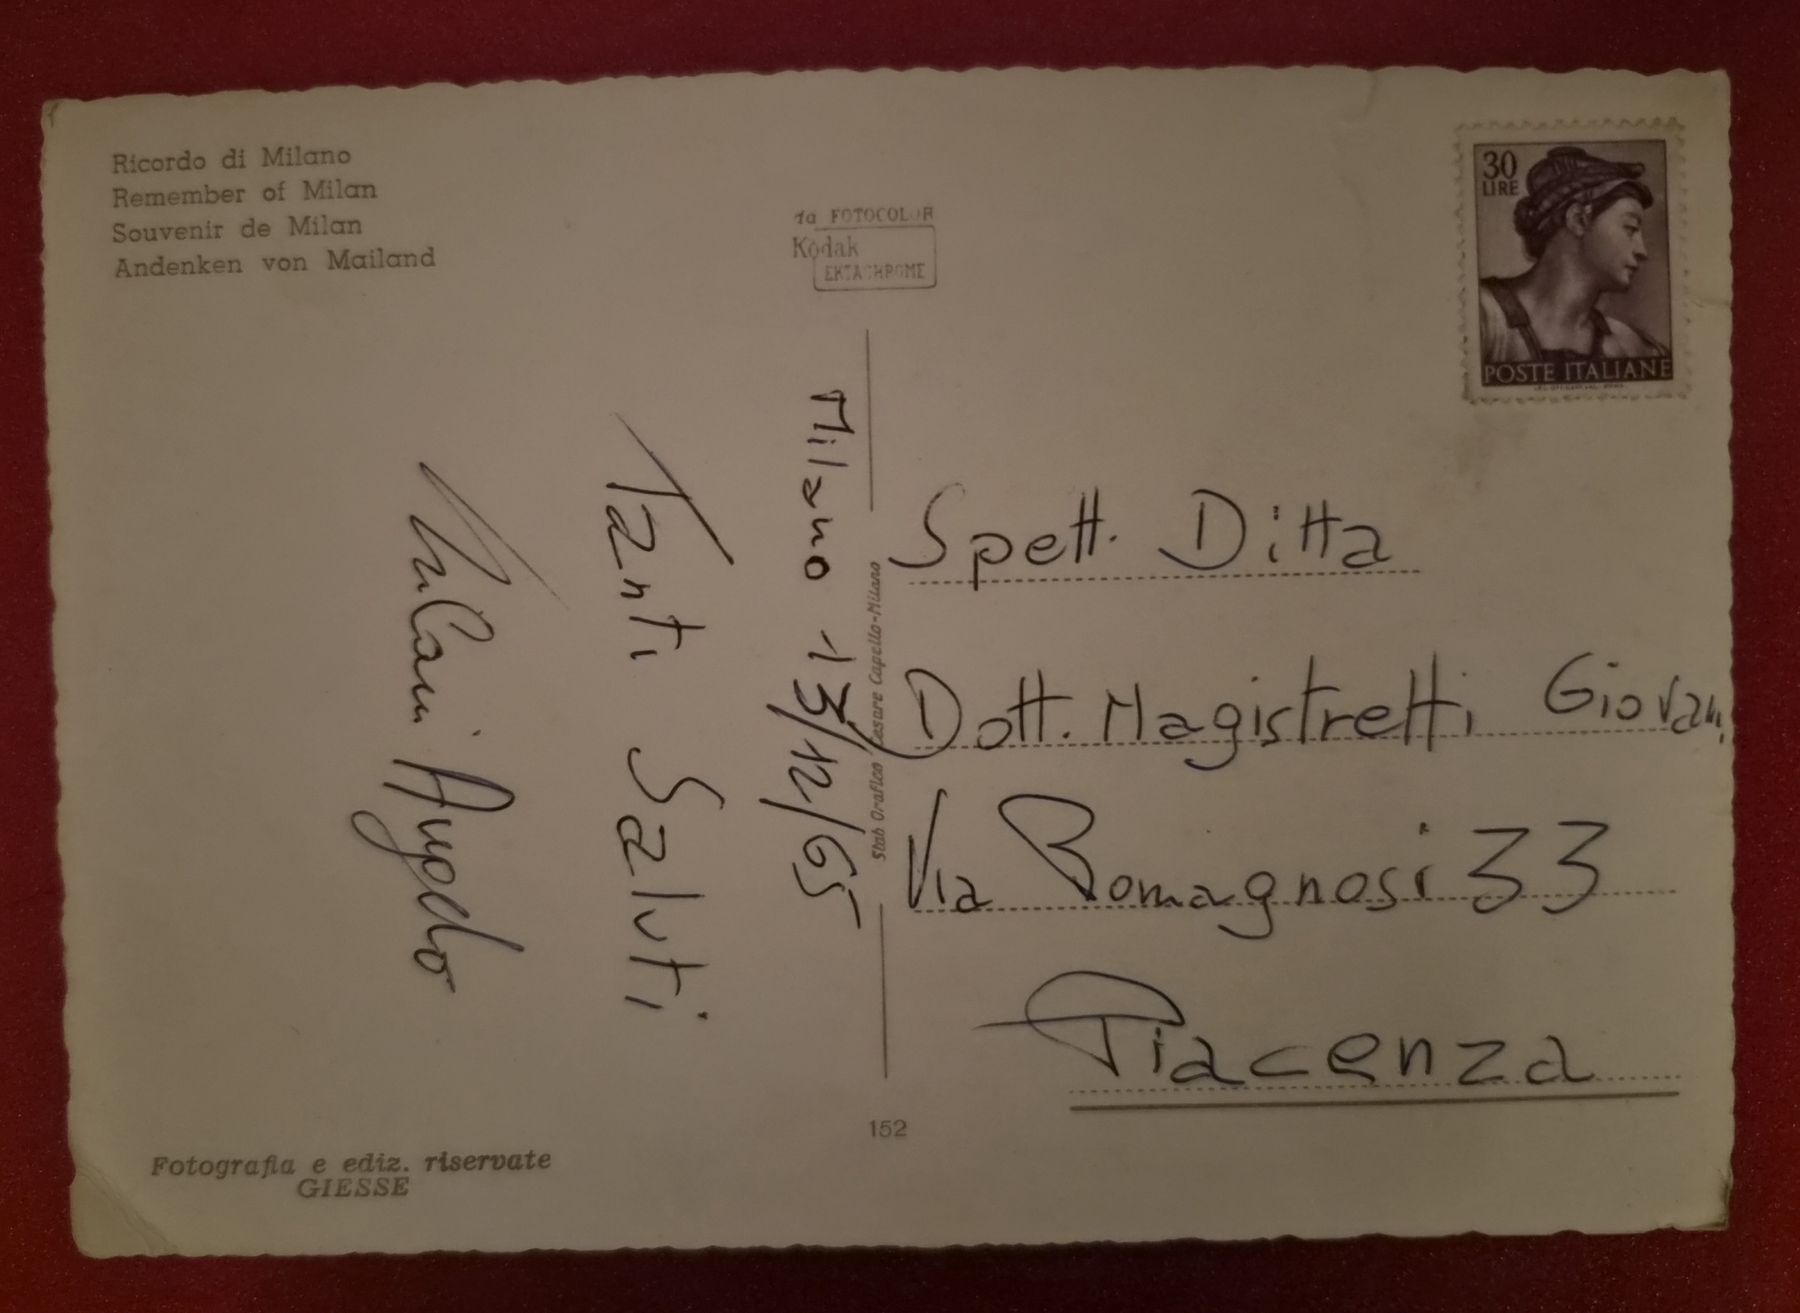 Ricordo di Milano
Remember of Milan
Souvenir de Milan
Andenken von Mailand
1a FOTOCOLOR
Kodak
EKTACHROME
30
LIRE
POSTE ITALIANE
Milano 13/12/65
Tanti Saluti
Angelo
Stab Grafico Cesare Capello-Milano
Spett. Ditta
Dott. Magistretti Giovan
Via Romagnosi 33
Piacenza
152
Fotografia e ediz. riservate
GIESSE